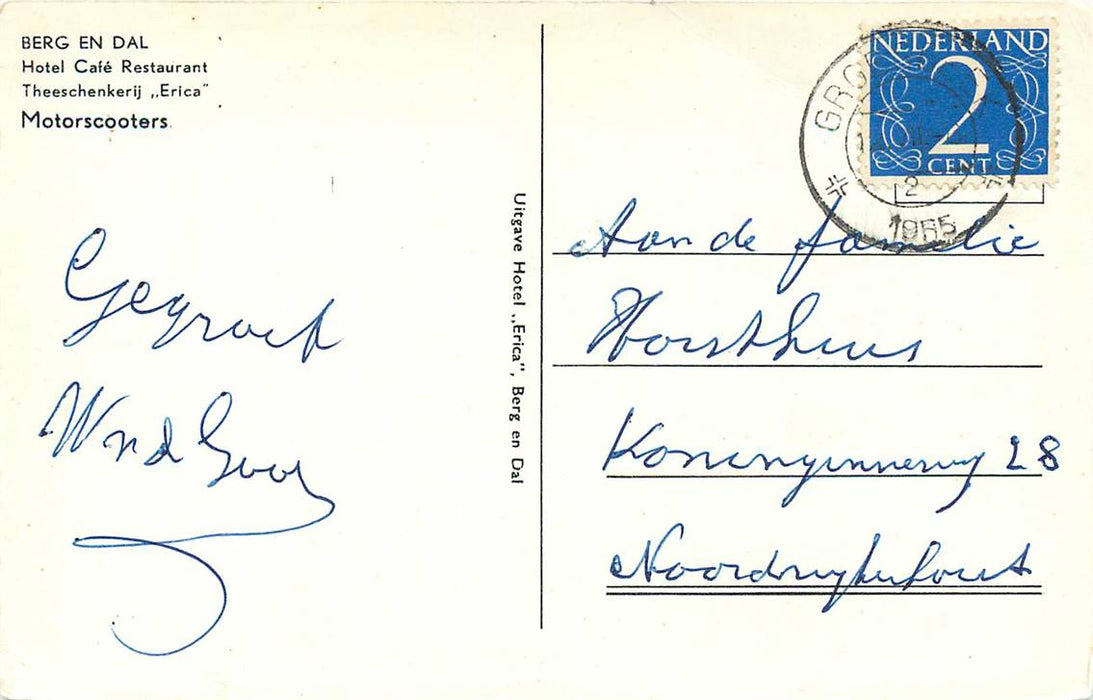 BERG EN DAL
Hotel Café Restaurant
Theeschenkerij „Erica"
Motorscooters
Gegroet
W v d Goor
Uitgave Hotel „Erica", Berg en Dal
NEDERLAND
2
CENT
GRO
2
1965
Aan de familie
Horsthuis
Koninginneweg 28
Noordwijkerhout